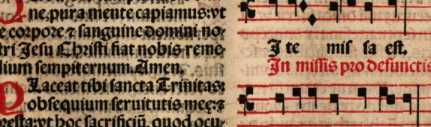 ne, pura mente capiamus: vt
de corpore & sanguine domini no
stri Jesu Christi fiat nobis reme
dium sempiternum. Amen.
Placeat tibi sancta Trinitas:
obsequium seruitutis mee: &
presta: vt hoc sacrificiũ, quod ocu
J te mis sa est.
In missis pro defunctis